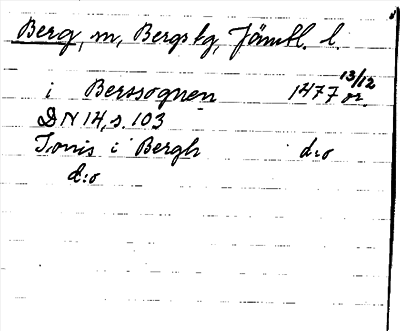 Berg, m, Bergs tg, Jämtl. l.
i Berssognen 1477 13/12 or.
DN 14, s. 103
Jonis i Bergh d:o
d:o